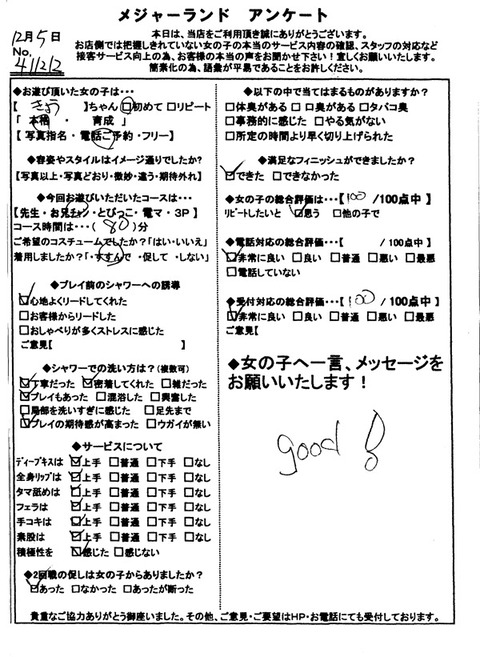 メジャーランド アンケート
12月5日
No.
41212
本日は、当店をご利用頂き誠にありがとうございます。
お店側では把握しきれていない女の子の本当のサービス内容の確認、スタッフの対応など
接客サービス向上の為、お客様の本当の声をお聞かせ下さい!宜しくお願いいたします。
簡素化の為、語彙が平易であることをお許しください。
◆お遊び頂いた女の子は…
【 きょう 】ちゃん ☑初めて □リピート
「 本指 ・ 育成 」
【 写真指名・電話ご予約・フリー】
◆容姿やスタイルはイメージ通りでしたか?
【写真以上・写真どおり・微妙・違う・期待外れ】
◆今回お遊びいただいたコースは…
【先生・お兄チャン・とびっこ・電マ・3P 】
コース時間は…( 80 )分
ご希望のコスチュームでしたか?「はい・いいえ」
着用しましたか?「・すすんで ・促して ・しない」
◆プレイ前のシャワーへの誘導
☑心地よくリードしてくれた
□お客様からリードした
□おしゃべりが多くストレスに感じた
ご意見【 】
◆シャワーでの洗い方は?(複数可)
☑丁寧だった ☑密着してくれた □雑だった
☑プレイもあった □混浴した □興奮した
□局部を洗いすぎに感じた □足先まで
☑プレイの期待感が高まった □ウガイが無い
◆サービスについて
ディープキスは ☑上手 □普通 □下手 □なし
全身リップは ☑上手 □普通 □下手 □なし
タマ舐めは ☑上手 □普通 □下手 □なし
フェラは ☑上手 □普通 □下手 □なし
手コキは ☑上手 □普通 □下手 □なし
素股は ☑上手 □普通 □下手 □なし
積極性を ☑感じた □感じない
◆2回戦の促しは女の子からありましたか?
☑あった □なかった □あったが断った
◆以下の中で当てはまるものがありますか?
□体臭がある □口臭がある □タバコ臭
□事務的に感じた □やる気がない
□所定の時間より早く切り上げられた
◆満足なフィニッシュができましたか?
☑できた □できなかった
◆女の子の総合評価は…【100 /100点中】
リピートしたいと ☑思う □他の子で
◆電話対応の総合評価…【 /100点中】
☑非常に良い □良い □普通 □悪い □最悪
□電話していない
◆受付対応の総合評価…【100 /100点中】
☑非常に良い □良い □普通 □悪い □最悪
ご意見【
◆女の子へ一言、メッセージを
お願いいたします!
good!
貴重なご協力ありがとう御座いました。その他、ご意見・ご要望はHP・お電話にても受付しております。